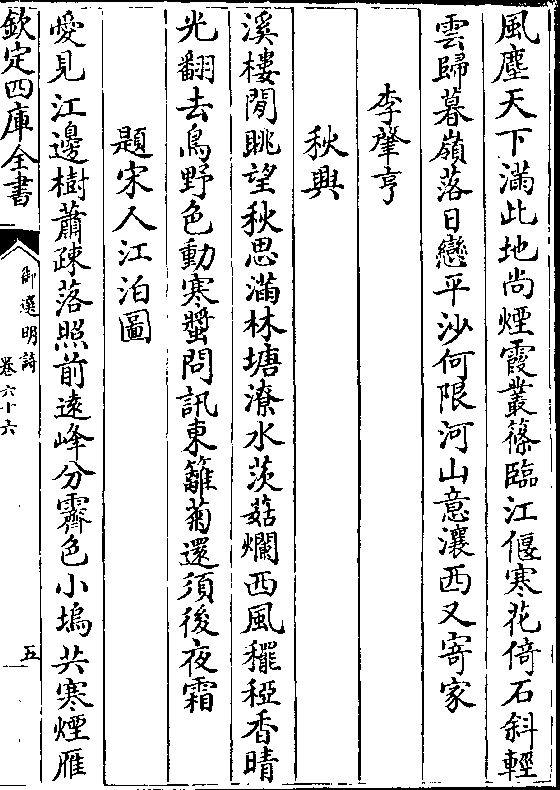 風塵天下滿此地尚煙霞叢篠臨江偃寒花倚石斜輕
雲歸暮嶺落日戀平沙何限河山意瀼西又寄家
李肇亨
秋興
溪樓閒眺望秋思滿林塘潦水茨菇爛西風䆉稏香晴
光翻去鳥野色動寒螿問訊東籬菊還須後夜霜
題宋人江泊圖
愛見江邊樹蕭疎落照前遠峰分霽色小塢共寒煙雁
欽定四庫全書
御選明詩
卷六十六
五